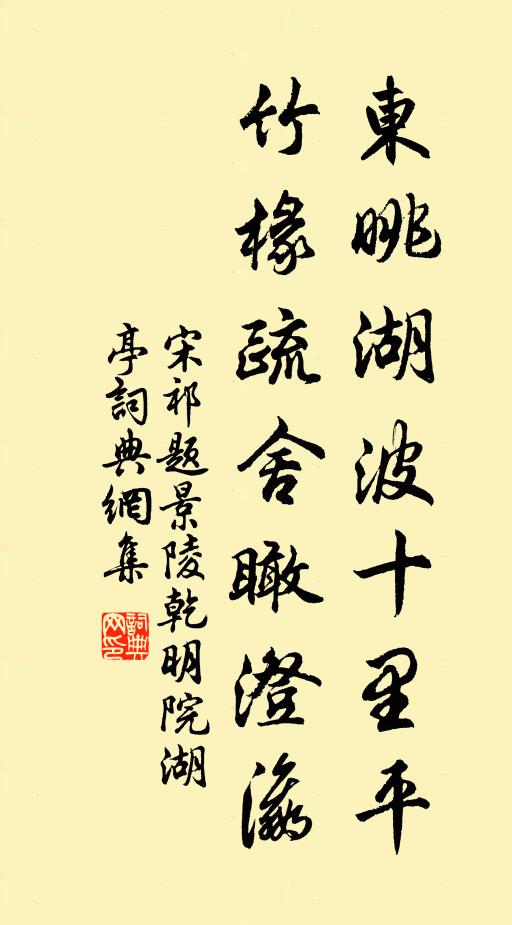 東眺湖波十里平
竹椽疏舍瞰澄瀛
宋祁题景陵乾明院湖
亭詞典網集
詞典网印